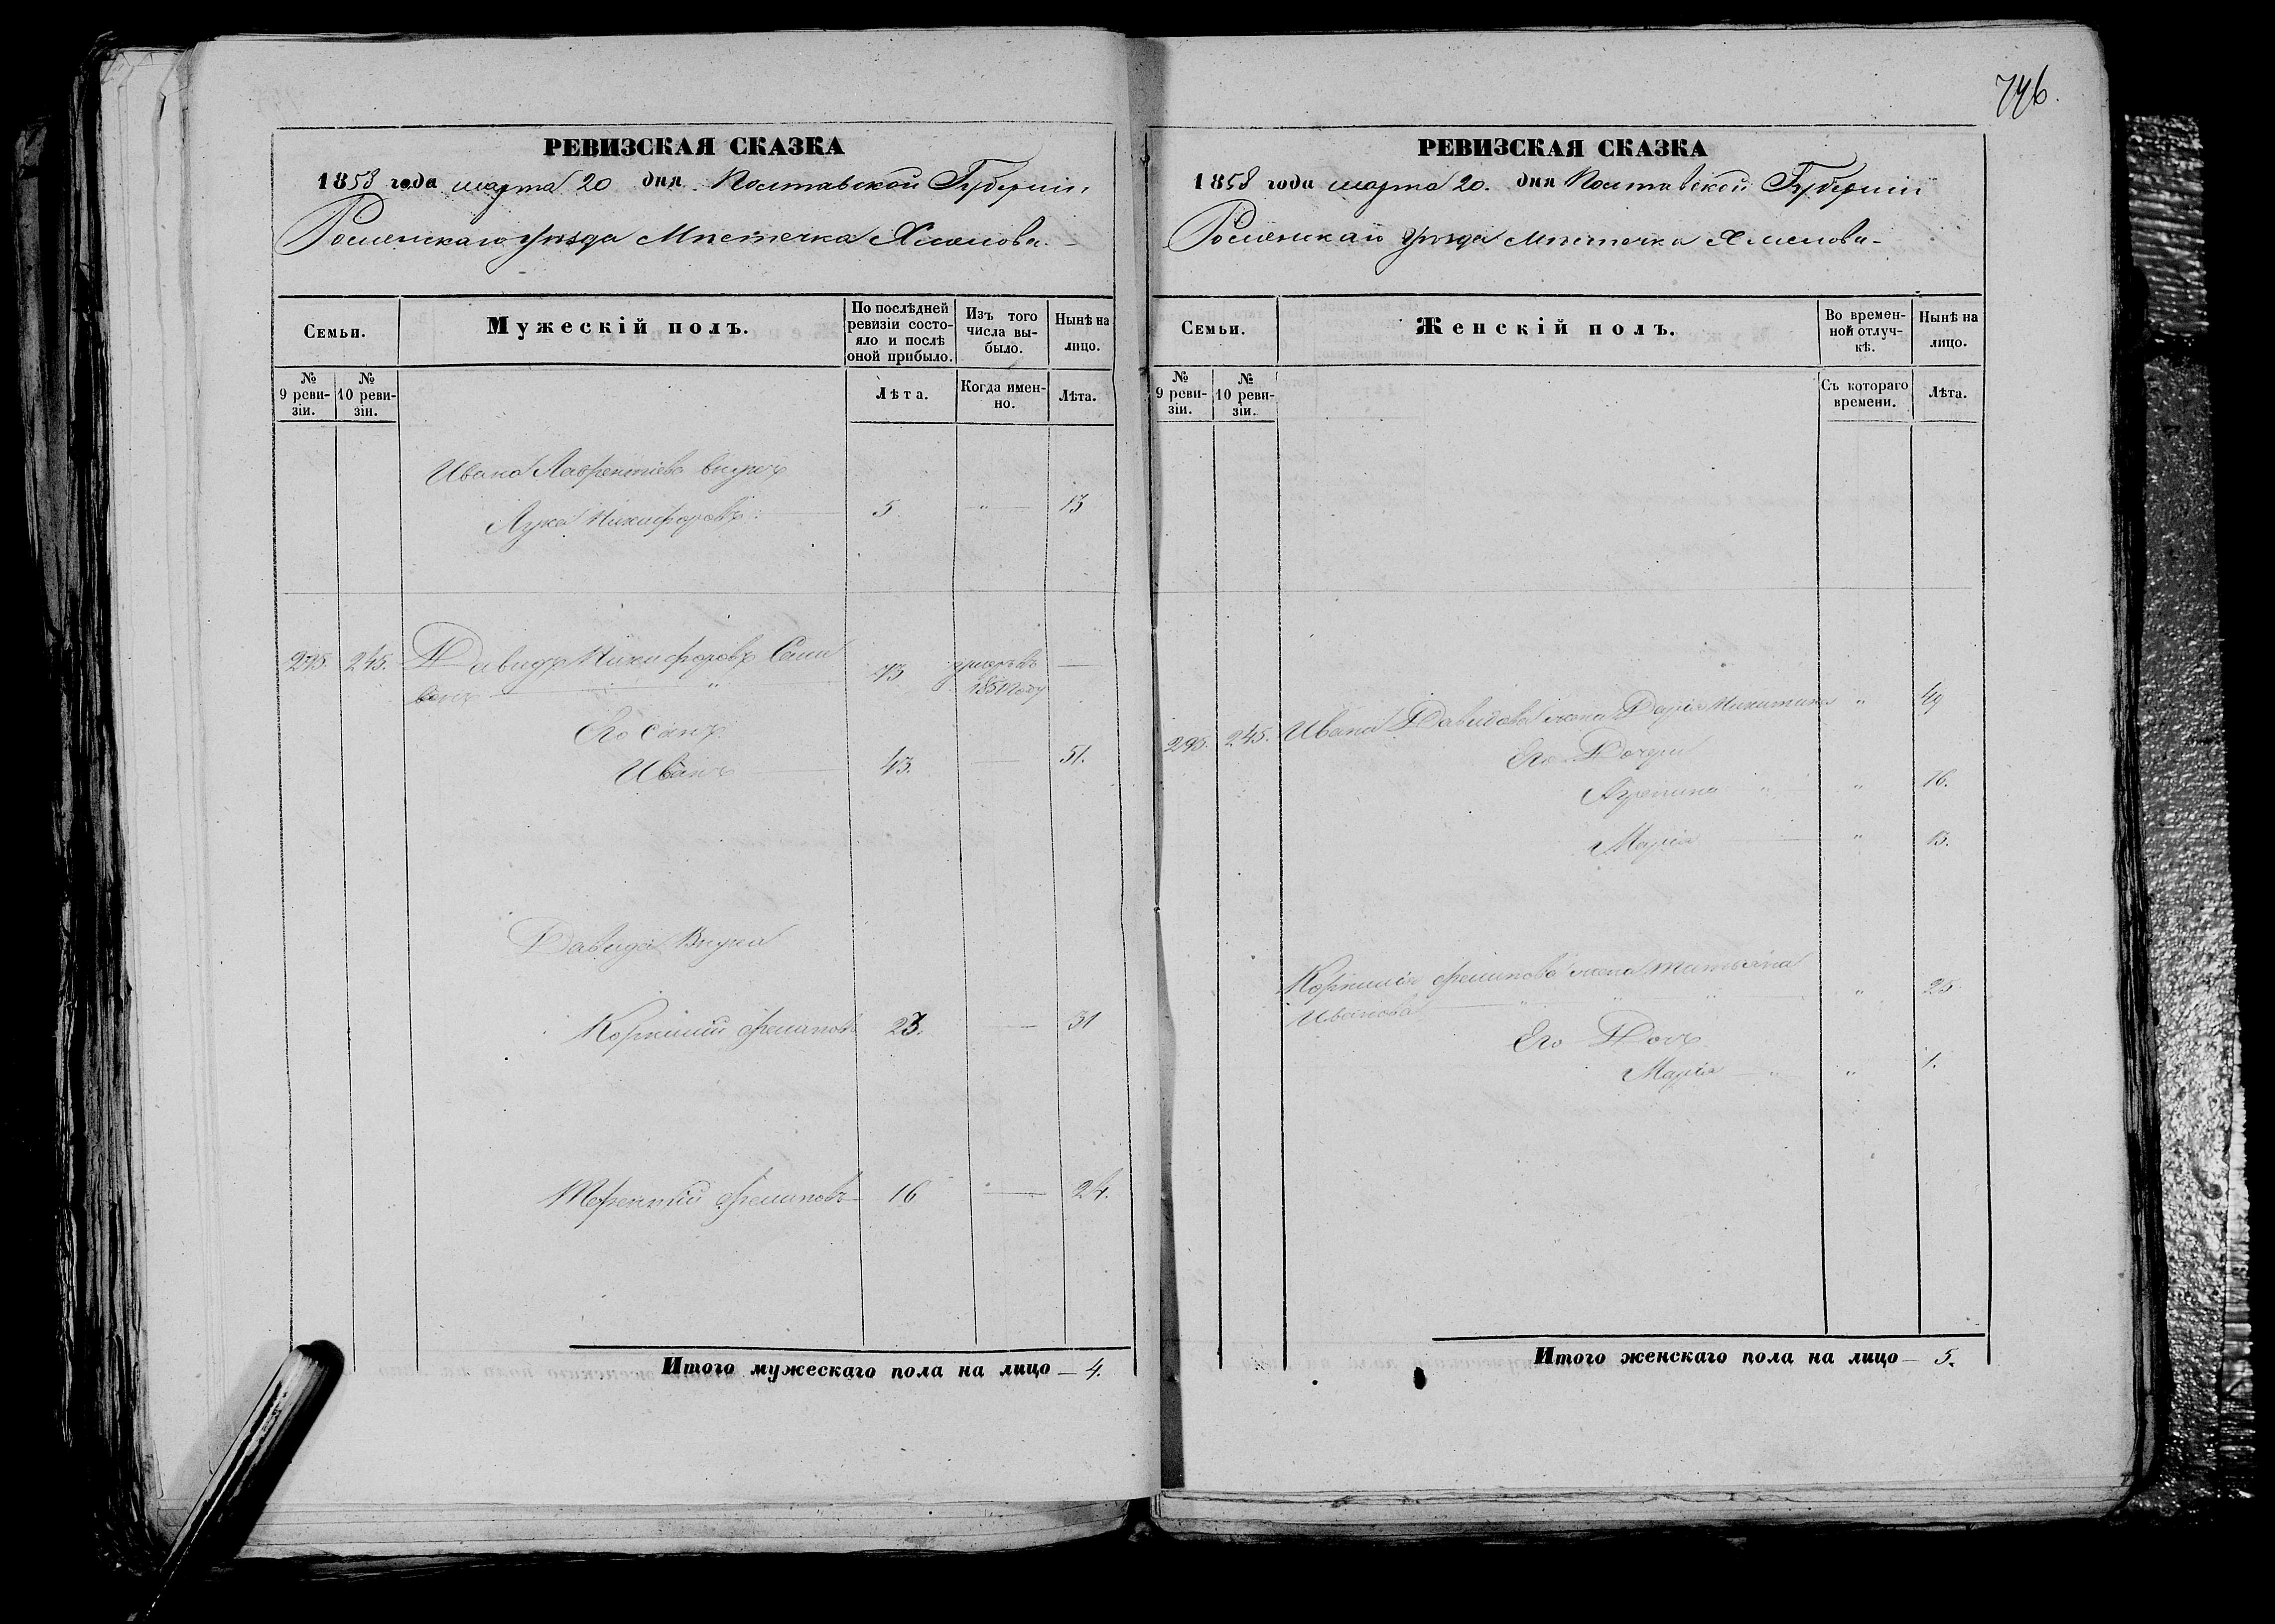 746.
РЕВИЗСКАЯ СКАЗКА
1858 года марта 20 дня Полтавской Губерніи
Роменскаго Уѣзда Мѣстечка Хмелова
Семьи.
Мужескій полъ.
По послѣдней ревизіи состояло и послѣ оной прибыло.
Изъ того числа выбыло.
Нынѣ на лицо.
№ 9 ревизіи.
№ 10 ревизіи.
Лѣта.
Когда именно.
Лѣта.
Ивана Лаврентіева внукъ
Лука Никифоровъ 5 " 13
245. Давидъ Никифоровъ умеръ въ
1851 году
Его Сынъ
Иванъ 43. 51.
Давида Внуки
Корнилій 23. 31
Терентій 16 24.
Итого мужескаго пола на лицо — 4.
РЕВИЗСКАЯ СКАЗКА
1858 года марта 20. дня Полтавской Губерніи
Роменскаго Уѣзда Мѣстечка Хмелова
Семьи.
Женскій полъ.
Во временной отлучкѣ.
Нынѣ на лицо.
№ 9 ревизіи.
№ 10 ревизіи.
Съ котораго времени.
Лѣта.
245. Ивана Давидова жена Дарія Никитина " 49
Его Дочери
Агрепина " " 16.
Марія " 13.
Корнилія жена Татьяна " 25
Иванова
Его Дочь
Марія " " 1.
Итого женскаго пола на лицо — 5.